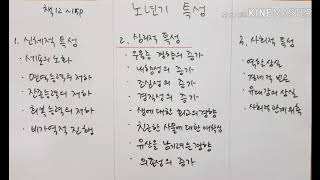 책 12~15P
노년기 특성
KINEMASTER
1. 신체적 특성
세포의 노화
· 면역능력의 저하
· 잔존능력의 저하
· 회복능력의 저하
· 비가역적 진행
2. 심리적 특성
· 우울증 경향의 증가
· 내향성의 증가
· 조심성의 증가
· 경직성의 증가
· 생에 대한 회고의 경향
· 친근한 사물에 대한 애착심
· 유산을 남기려는 경향
· 의존성의 증가
3. 사회적 특성
· 역할 상실
· 경제적 빈고
· 유대감의 상실
· 사회적 관계 위축